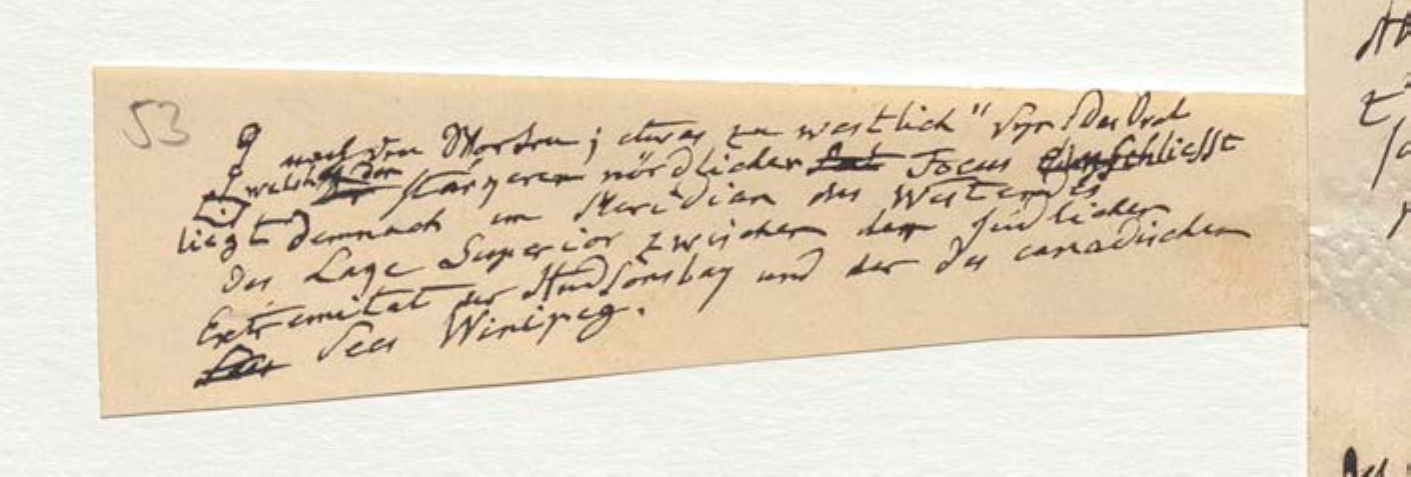 53
nach den Worten; etwas zu westlich" Das Oval
welches den stärkeren nördlichen Focus einschliesst
liegt demnach im Meridian des Westendes
des Lage Superior zwischen der südlichen
Extremität der Hudsonsbay und der des canadischen
Sees Winipeg.